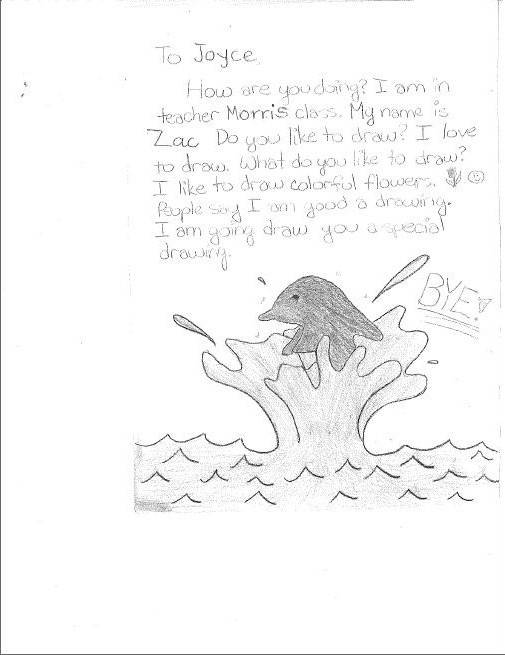 To Joyce,
How are you doing? I am in
teacher Morris class. My name is
Zac Do you like to draw? I love
to draw. What do you like to draw?
I like to draw colorful flowers.
People say I am good a drawing.
I am going draw you a special
drawing.
BYE!